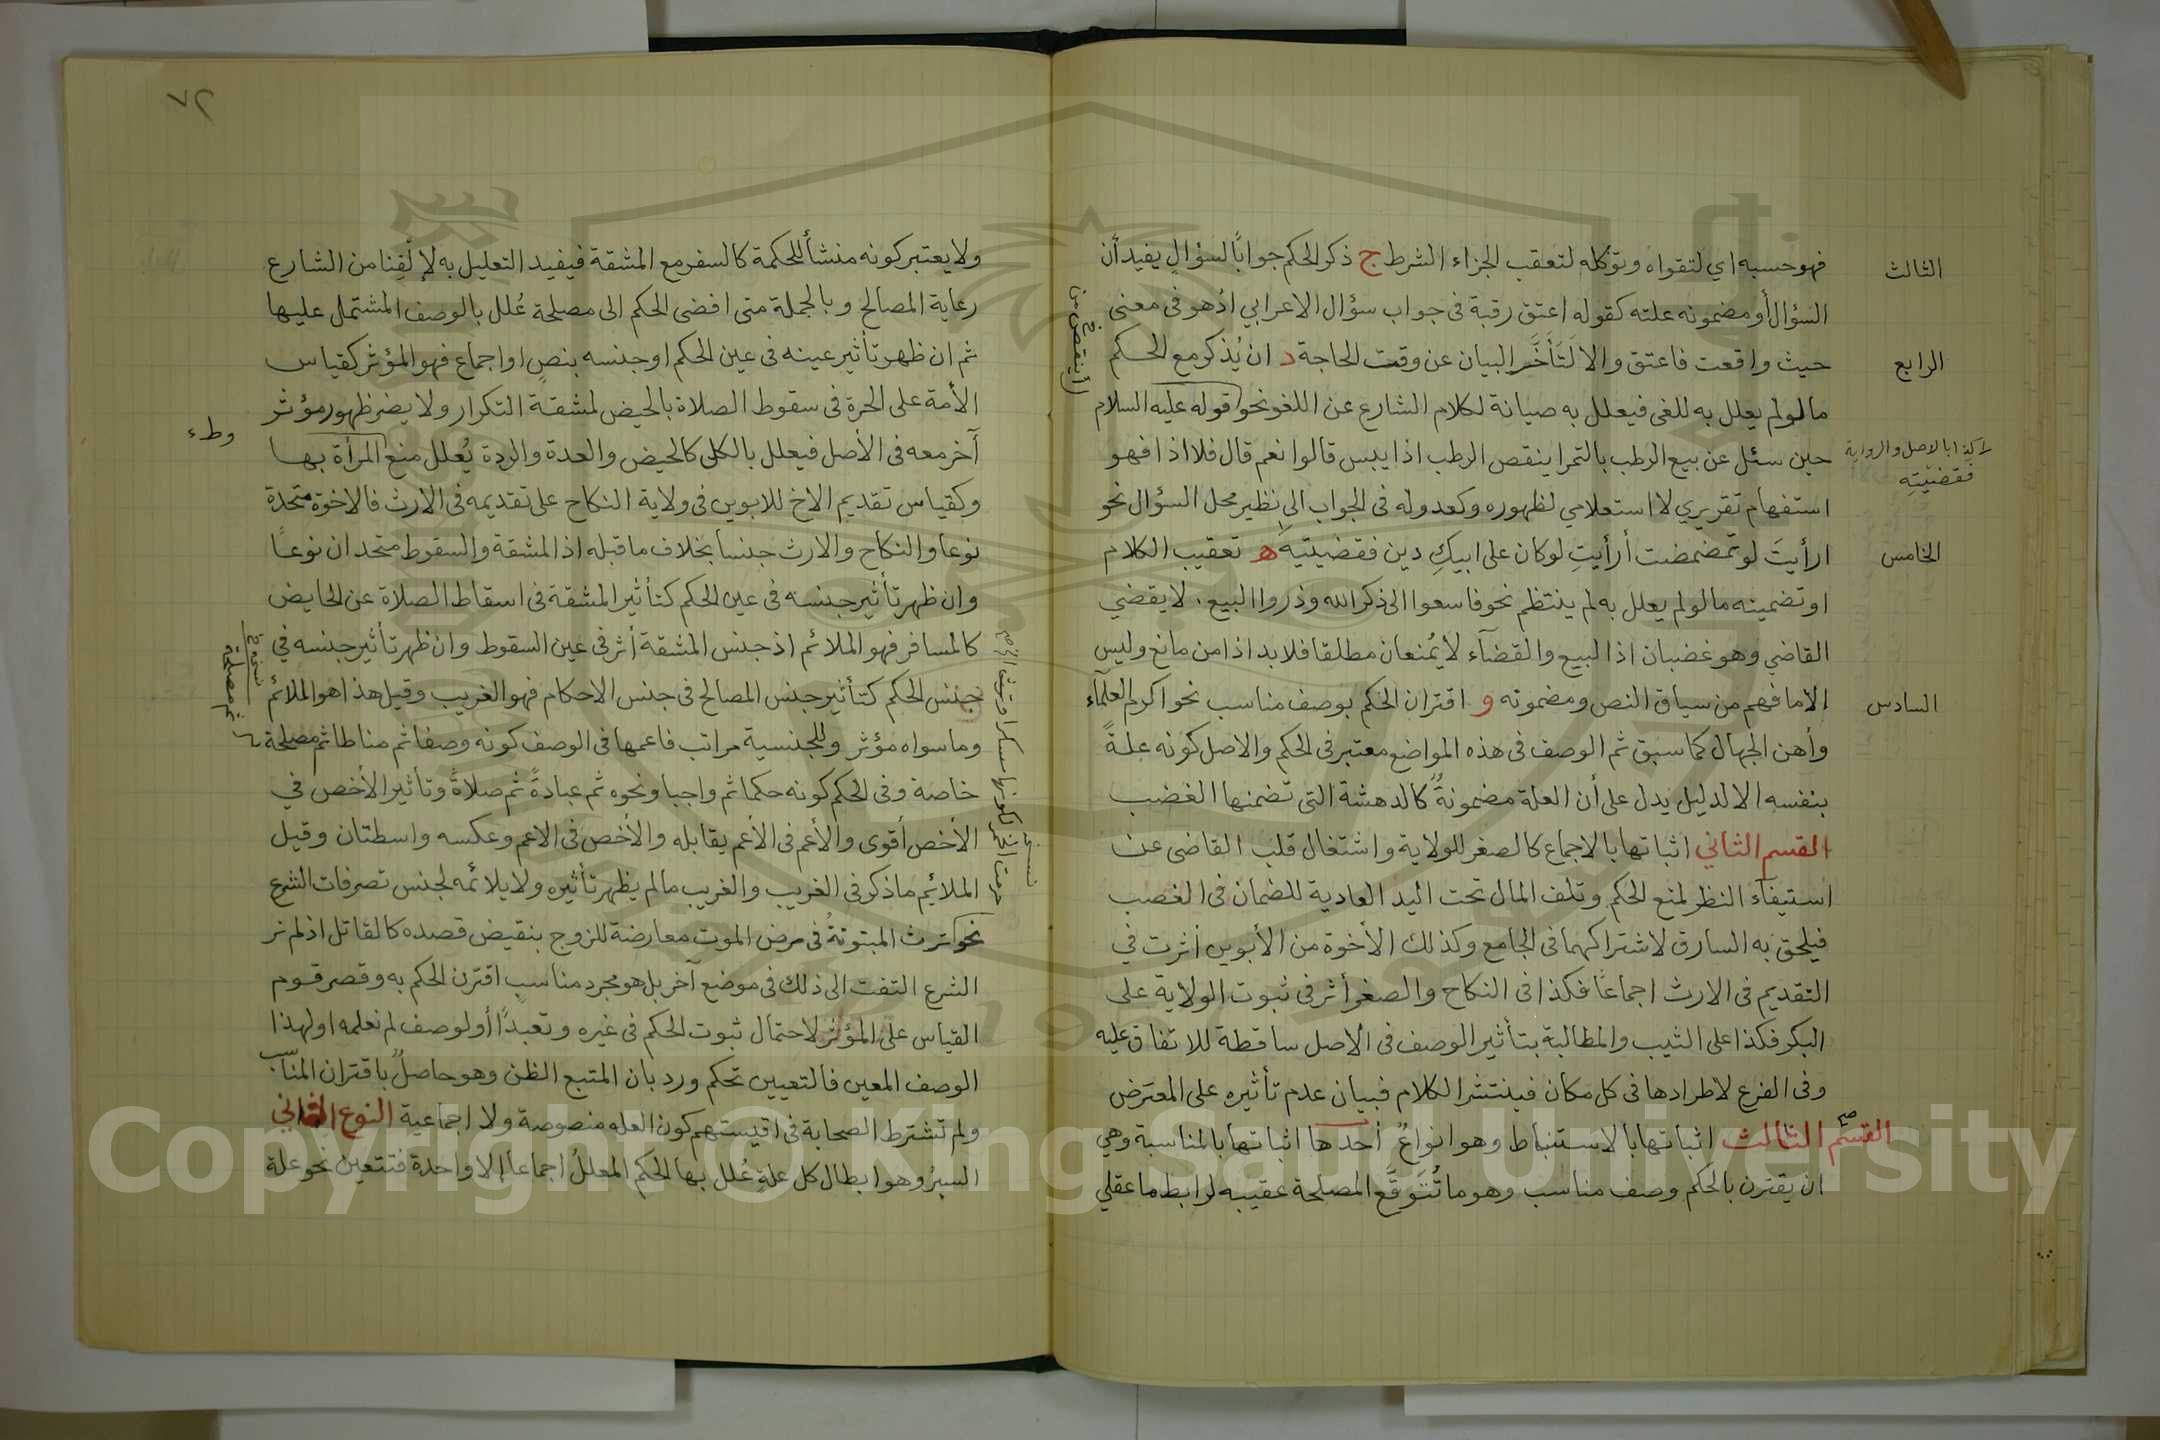 فهو حسبه اي لتقواه وتوكله لتعقب الجزاء الشرط ج ذكر الحكم جوابًا لسؤال يفيد أن
السؤال أو مضمونه علته كقوله اعتق رقبة فى جواب سؤال الاعرابي اذ هو فى معنى
حيث واقعت فاعتق والا لَتَأَخَّر البيان عن وقت الحاجة د ان يُذكر مع الحكم
ما لو لم يعلل به للغى فيعلل به صيانة لكلام الشارع عن اللغو نحو قوله عليه السلام
حين سئل عن بيع الرطب بالتمر اينقص الرطب اذا يبس قالوا نعم قال فلا اذا فهو
استفهام تقريري لا استعلامي لظهوره وكعدوله فى الجواب الى نظير محل السؤال نحو
ارأيتَ لو تمضمضت أرأيتِ لو كان على ابيكِ دين فقضيتيه ه تعقيب الكلام
او تضمينه ما لو لم يعلل به لم ينتظم نحو فاسعوا الى ذكر الله وذروا البيع . لا يقضي
القاضي وهو غضبان اذ البيع والقضآء لا يُمنعان مطلقا فلا بد اذا من مانع وليس
الا ما فهم من سياق النص ومضمونه و اقتران الحكم بوصف مناسب نحو اكرم العلمآء
وأهن الجهال كما سبق ثم الوصف فى هذه المواضع معتبر فى الحكم والاصل كونه علةً
بنفسه الا لدليل يدل على أن العلة مضمونةٌ كالدهشة التى تضمنها الغضب
القسم الثاني اثباتها بالاجماع كالصغر للولاية واشتغال قلب القاضى عن
استيفآء النظر لمنع الحكم وتلف المال تحت اليد العادية للضمان فى الغصب
فيلحق به السارق لاشتراكهما فى الجامع وكذلك الأخوة من الأبوين أثرت في
التقديم فى الارث اجماعًا فكذا فى النكاح والصغر أثر فى ثبوت الولاية على
البكر فكذا على الثيب والمطالبة بتأثير الوصف فى الأصل ساقطة للاتفاق عليه
وفى الفرع لاطرادها فى كل مكان فينتشر الكلام فبيان عدم تأثيره على المعترض
القسم الثالث اثباتها بالاستنباط وهو انواعٌ أحدها اثباتها بالمناسبة وهي
ان يقترن بالحكم وصف مناسب وهو ما تُتَوقَّع المصلحة عقيبه لرابط ما عقلي
الثالث
الرابع
كذا بالاصل والرواية
فقضيتِه
الخامس
السادس
أينقص
٧٢
ولا يعتبر كونه منشأ للحكمة كالسفر مع المشقة فيفيد التعليل به لإلْفِنا من الشارع
رعاية المصالح وبالجملة متى افضى الحكم الى مصلحة عُلل بالوصف المشتمل عليها
ثم ان ظهر تأثير عينه فى عين الحكم او جنسه بنصٍ او اجماع فهو المؤثر كقياس
الأمة على الحرة فى سقوط الصلاة بالحيض لمشقة التكرار ولا يضر ظهور مؤثر
آخر معه فى الأصل فيعلل بالكلى كالحيض والعدة والردة يُعلل منع المرأة بها
وكقياس تقديم الاخ للابوين فى ولاية النكاح على تقديمه فى الارث فالاخوة متحدة
نوعا والنكاح والارث جنسا بخلاف ما قبله اذ المشقة والسقوط متحدان نوعًا
وان ظهر تأثير جنسه فى عين الحكم كتأثير المشقة فى اسقاط الصلاة عن الحايض
كالمسافر فهو الملائم اذ جنس المشقة أثر فى عين السقوط وان ظهر تأثير جنسه في
جنس الحكم كتأثير جنس المصالح فى جنس الاحكام فهو الغريب وقيل هذا هو الملائم
وما سواه مؤثر وللجنسية مراتب فاعمها فى الوصف كونه وصفا ثم مناطا ثم مصلحة
خاصة وفى الحكم كونه حكما ثم واجبا ونحوه ثم عبادةً ثم صلاةً وتأثير الأخص في
الأخص أقوى والأعم فى الأعم يقابله والأخص فى الاعم وعكسه واسطتان وقيل
الملائم ما ذكر فى الغريب والغريب ما لم يظهر تأثيره ولا يلائمه لجنس تصرفات الشرع
نحو ترث المبتوتةُ فى مرض الموت معارضة للزوج بنقيض قصده كالقاتل اذ لم نر
الشرع التفت الى ذلك فى موضع آخر بل هو مجرد مناسب اقترن الحكم به وقصر قوم
القياس على المؤثر لاحتمال ثبوت الحكم فى غيره وتعبدًا أو لوصف لم نعلمه او لهذا
الوصف المعين فالتعيين تحكم ورد بان المتبع الظن وهو حاصلٌ باقتران المناسب
ولم تشترط الصحابة فى اقيستهم كون العله منصوصة ولا اجماعية النوع الثاني
السبرُ وهو ابطال كل علةٍ عُلل بها الحكم المعللُ اجماعا إلا واحدة فتتعين نحو علة
وطء
نسخة
ثم مصلحة